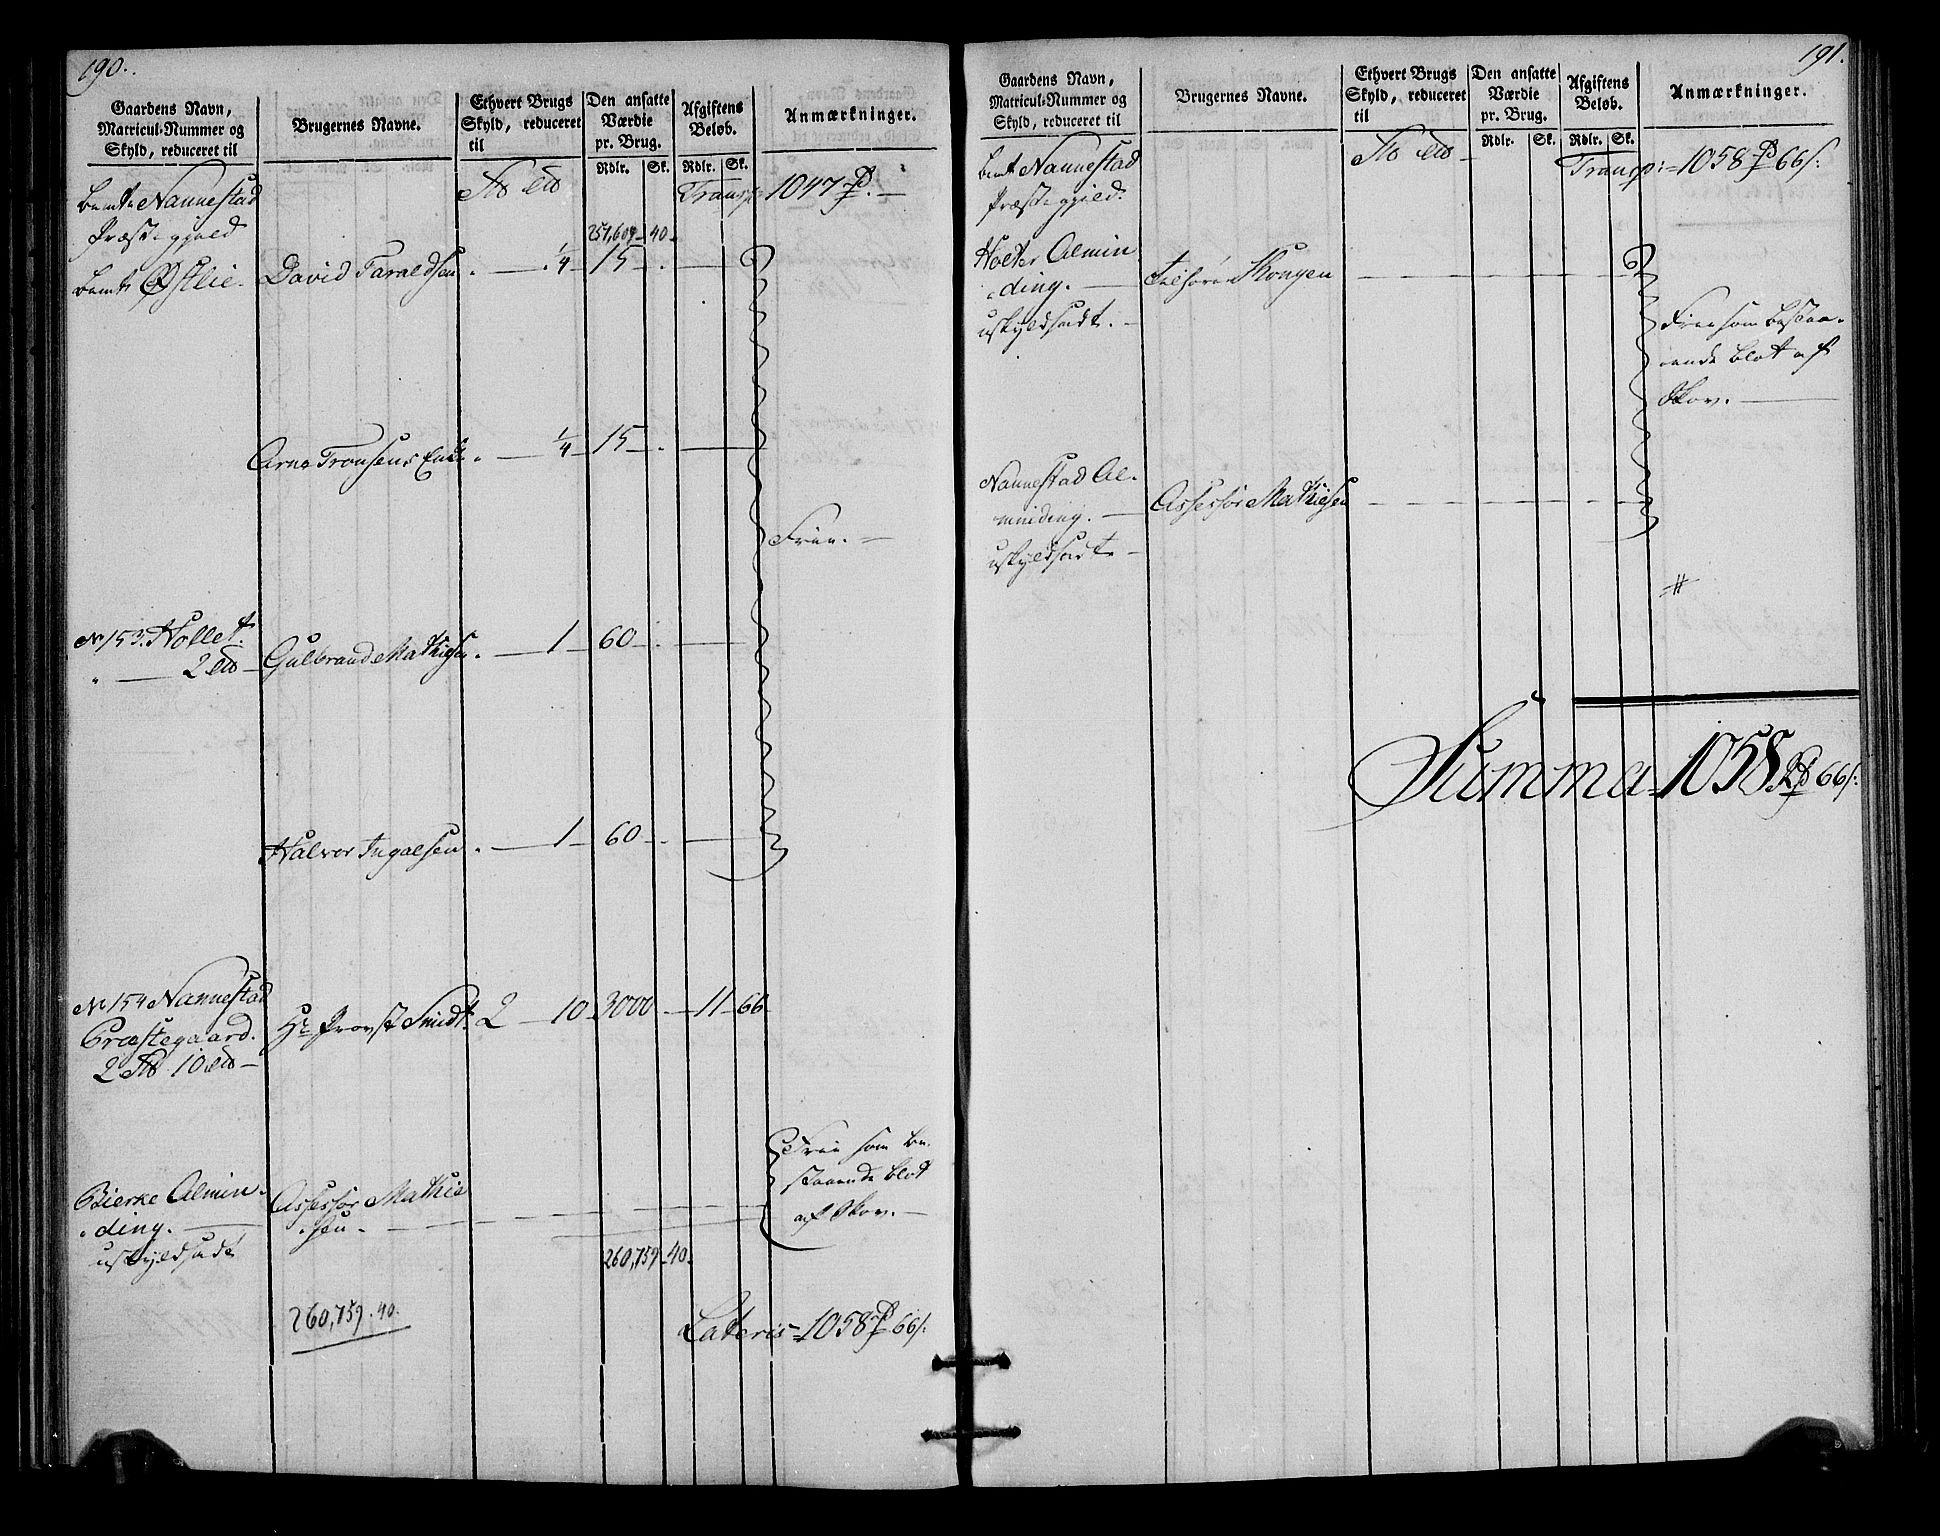 190.
Gaardens Navn,
Matricul-Nummer og
Skyld, reduceret til
Brugernes Navne.
Ethvert Brugs
Skyld, reduceret
til
Den ansatte
Værdie
pr. Brug.
Rdlr. Sk.
Afgiftens
Beløb.
Rdlr. Sk.
Anmærkninger.
Nannestad
Præstegield
Transp: 1047
257,609 40
Østlie. David Taraldsen 1/4 15
Arne Tronsens Enke 1/4 15
Frie.
No 153. Hollet.
2 Gulbrand Mathiesen 1 60
Halvor Ingalsen 1 60
No 154 Nannestad
Præstegaard.
2 10
Hr Provst Smidt. 2 10 3000 11 66
Frie som be-
staaende blot
af Skov.
Bierke Almin-
ding.
uskyldsadt
Assessor Mathie
sen
260,759 40
260,759.40.
Lateris 1058 66
191.
Gaardens Navn,
Matricul-Nummer og
Skyld, reduceret til
Brugernes Navne.
Ethvert Brugs
Skyld, reduceret
til
Den ansatte
Værdie
pr. Brug.
Rdlr. Sk.
Afgiftens
Beløb.
Rdlr. Sk.
Anmærkninger.
Nannestad
Præstegield.
Transp: 1058 66
Holter Almin
ding.
uskyldsadt.
Tilhører Kongen
Frie som bestaa-
ende blot af
Skov.
Nannestad Al-
minding.
uskyldsadt
Assessor Mathiesen
Summa 1058 66